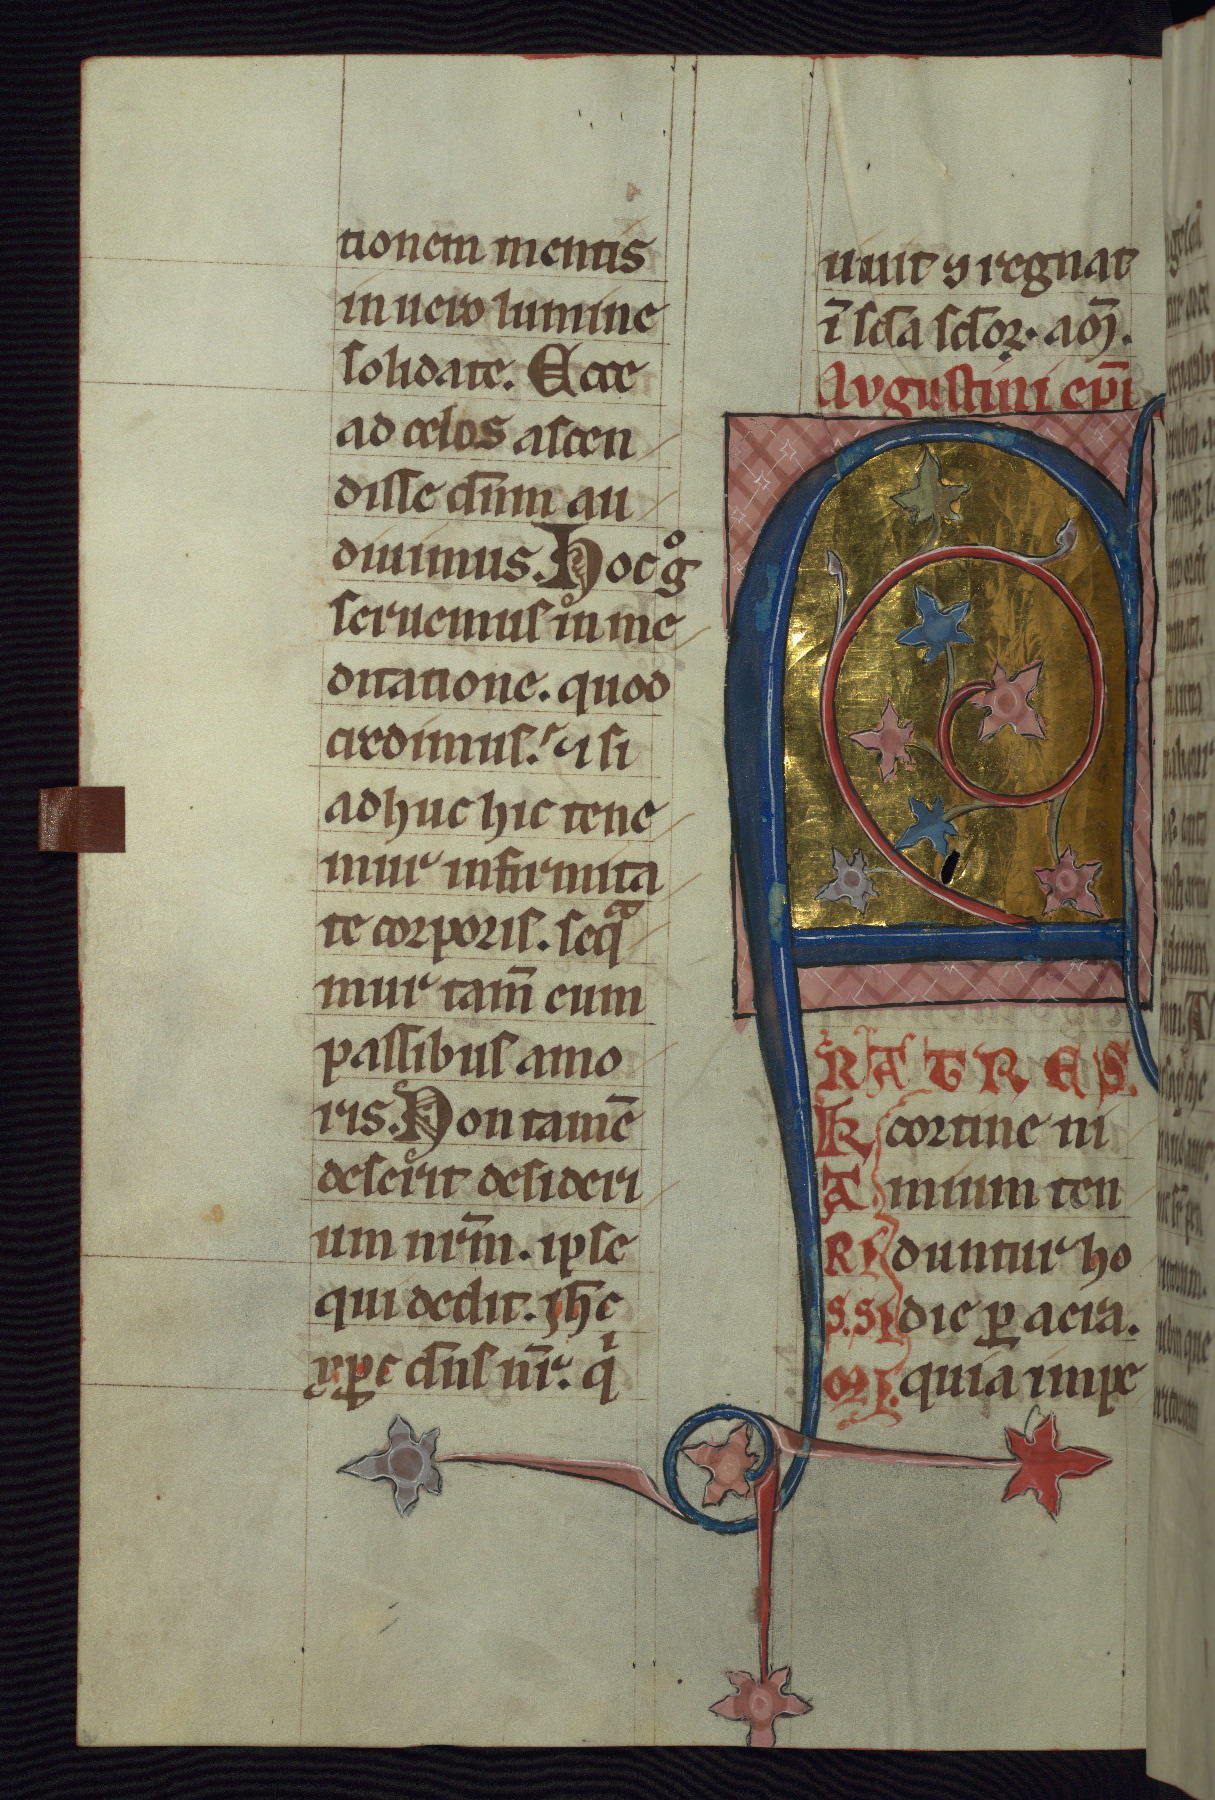 tionem mentis
in uero lumine
solidate. Ecce
ad celos ascen
disse dn̄m au
diuimus. Hoc gͦ
seruemus in me
ditatione. quod
credimus. et si
adhuc hic tene
mur infirmita
te corporis. seqͣ
mur tam̄ eum
passibus amo
ris. Non tamē
deserit desideri
um nr̄m. ipse
qui dedit. ih̄c
xp̄c dn̄s nr̄. qͥ
uiuit ⁊ regnat
ī sc̄la sc̄loꝝ. am̄.
Augustini ep̄i
RATRES
K cortine ni
A mium ten
RI duntur ho
S.SI die ꝑ aera.
MI. quia impe